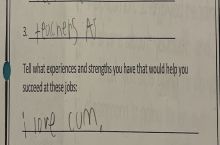 3. teachers As
Tell what experiences and strengths you have that would help you
succeed at these jobs:
i love cum,